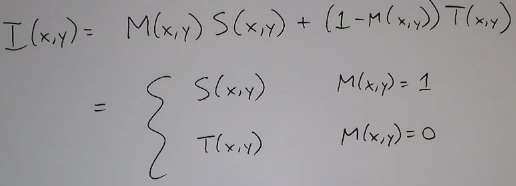 I(x,y) = M(x,y) S(x,y) + (1-M(x,y)) T(x,y)
= { S(x,y) M(x,y) = 1
T(x,y) M(x,y) = 0